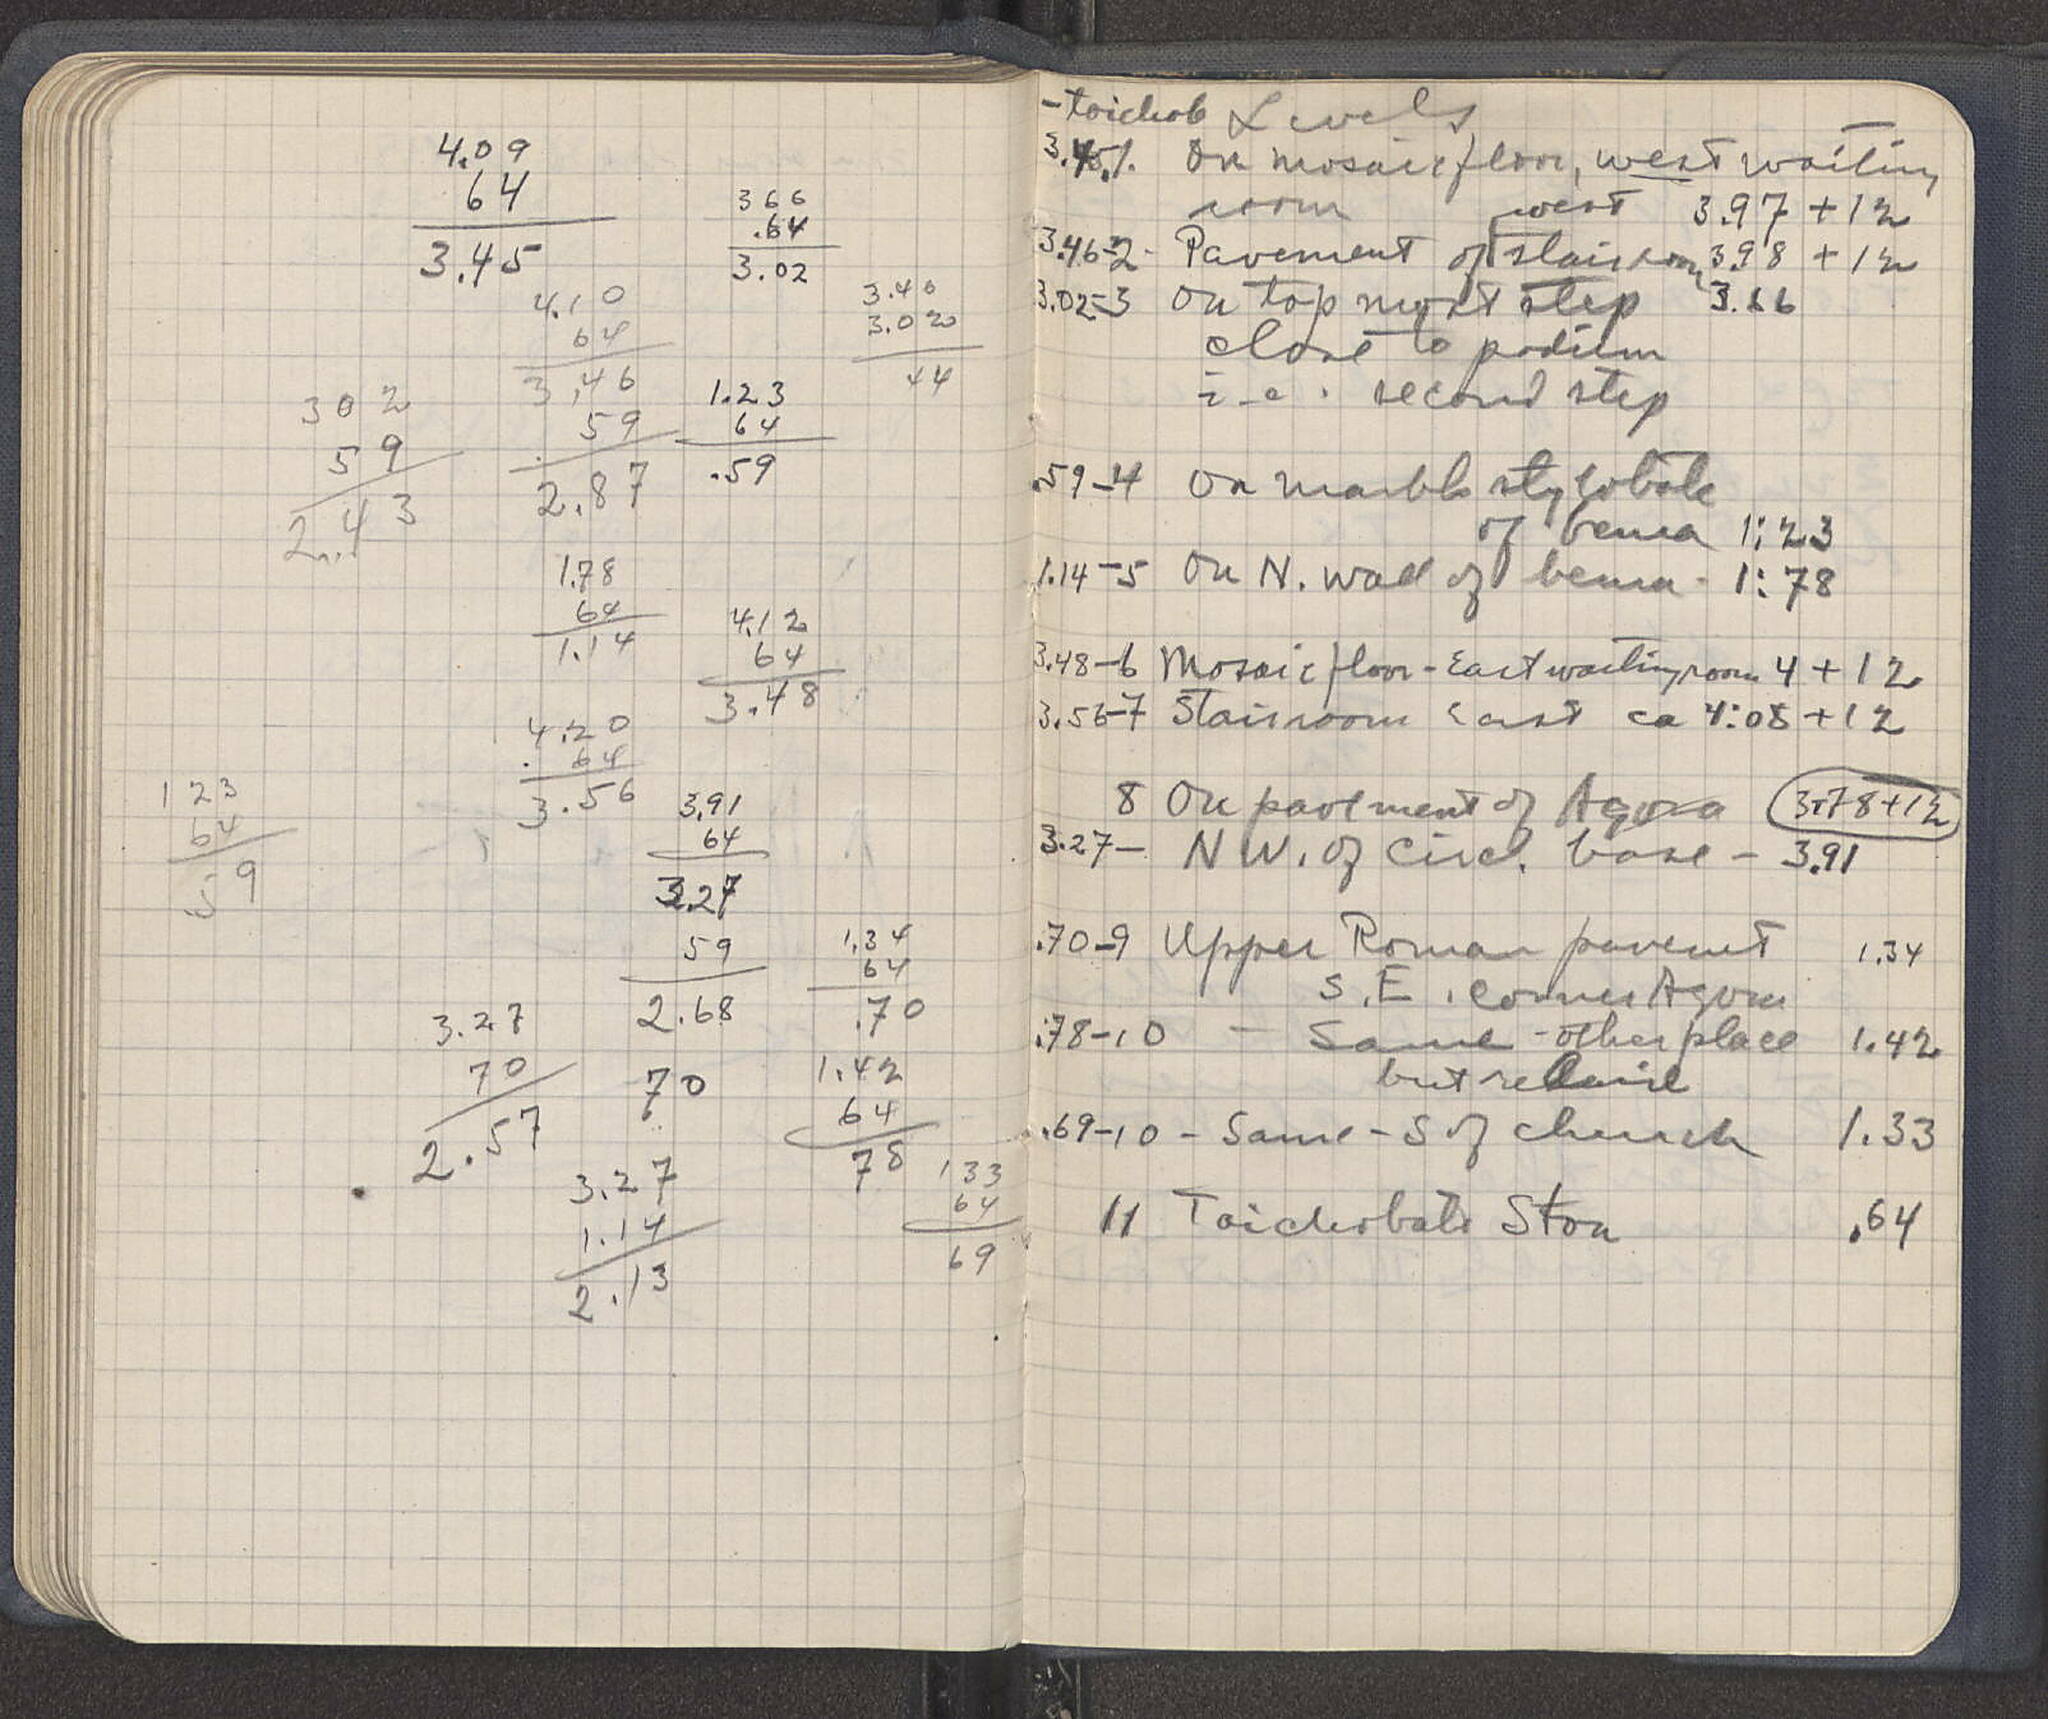 4.09
64
3.45
366
.64
3.02
4.10
64
3.46
59
2.87
3.40
3.02
44
302
59
2.43
1.23
64
.59
1.78
64
1.14
4.12
64
3.48
4.20
.64
3.56
123
64
.59
3.91
64
3.27
59
2.68
70
1.34
64
.70
3.27
70
2.57
1.42
64
78
3.27
1.14
2.13
133
64
69
-toichob Levels
3.45.1. On mosaic floor, west waiting
room west 3.97 + 12
3.46-2- Pavement of stairroom 3.98 + 12
3.02-3 On top most step 3.66
close to podium
i-e. second step
.59-4 On marble stylobate
of bema 1:23
1.14-5 On N. wall of bema - 1:78
3.48-6 Mosaic floor - East waiting room 4 + 12
3.56-7 Stairroom East ca 4:08 + 12
8 On pavement of Agora 3.78+12
3.27- N W. of Circ. base - 3.91
.70-9 Upper Roman pavemt 1.34
S.E. corner Agora
.78-10 - Same - other place 1.42
but
.69-10 - Same - S of church 1.33
11 Toichobate Stoa .64